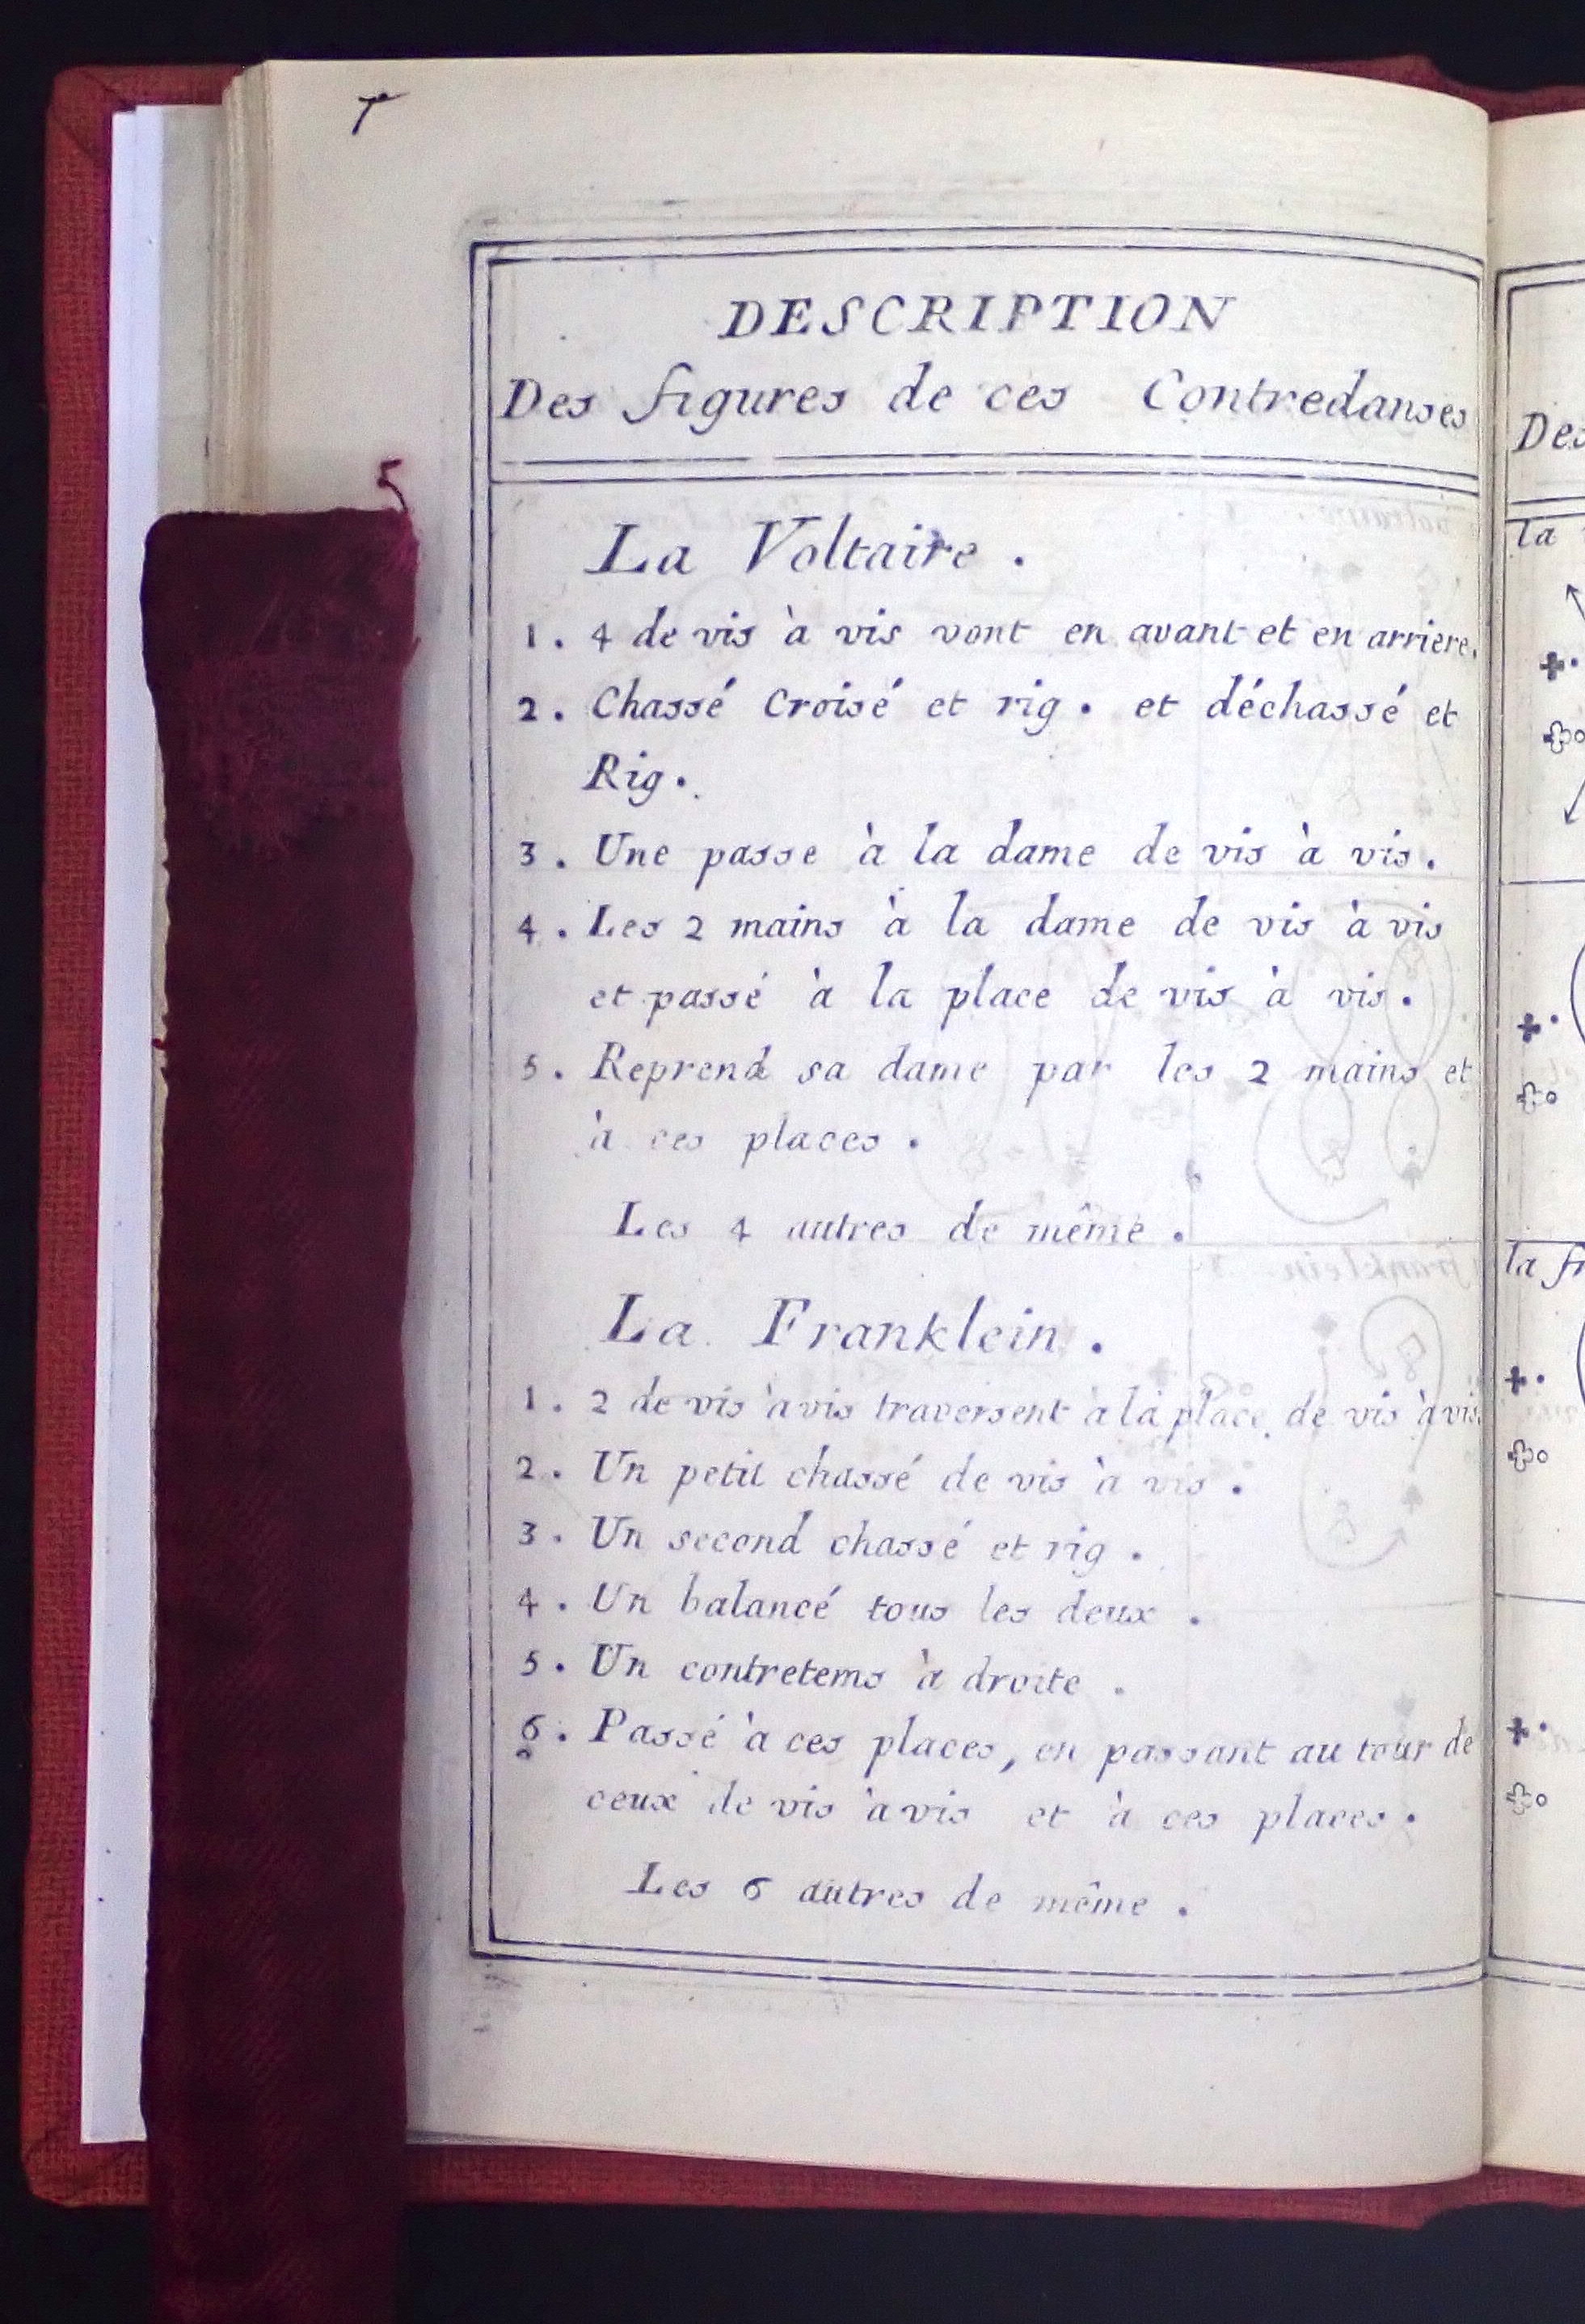 DESCRIPTION
Des figures de ces Contredanses
La Voltaire.
1. 4 de vis à vis vont en avant et en arriere.
2. Chassé Croisé et rig. et déchassé et
Rig.
3. Une passe à la dame de vis à vis.
4. Les 2 mains à la dame de vis à vis
et passé à la place de vis à vis.
5. Reprend sa dame par les 2 mains et
à ces places.
Les 4 autres de même.
La Franklein.
1. 2 de vis à vis traversent à la place de vis à vis.
2. Un petit chassé de vis à vis.
3. Un second chassé et rig.
4. Un balancé tous les deux.
5. Un contretems à droite.
6. Passé à ces places, en passant au tour de
ceux de vis à vis et à ces places.
Les 6 autres de même.
Des
la
la fr